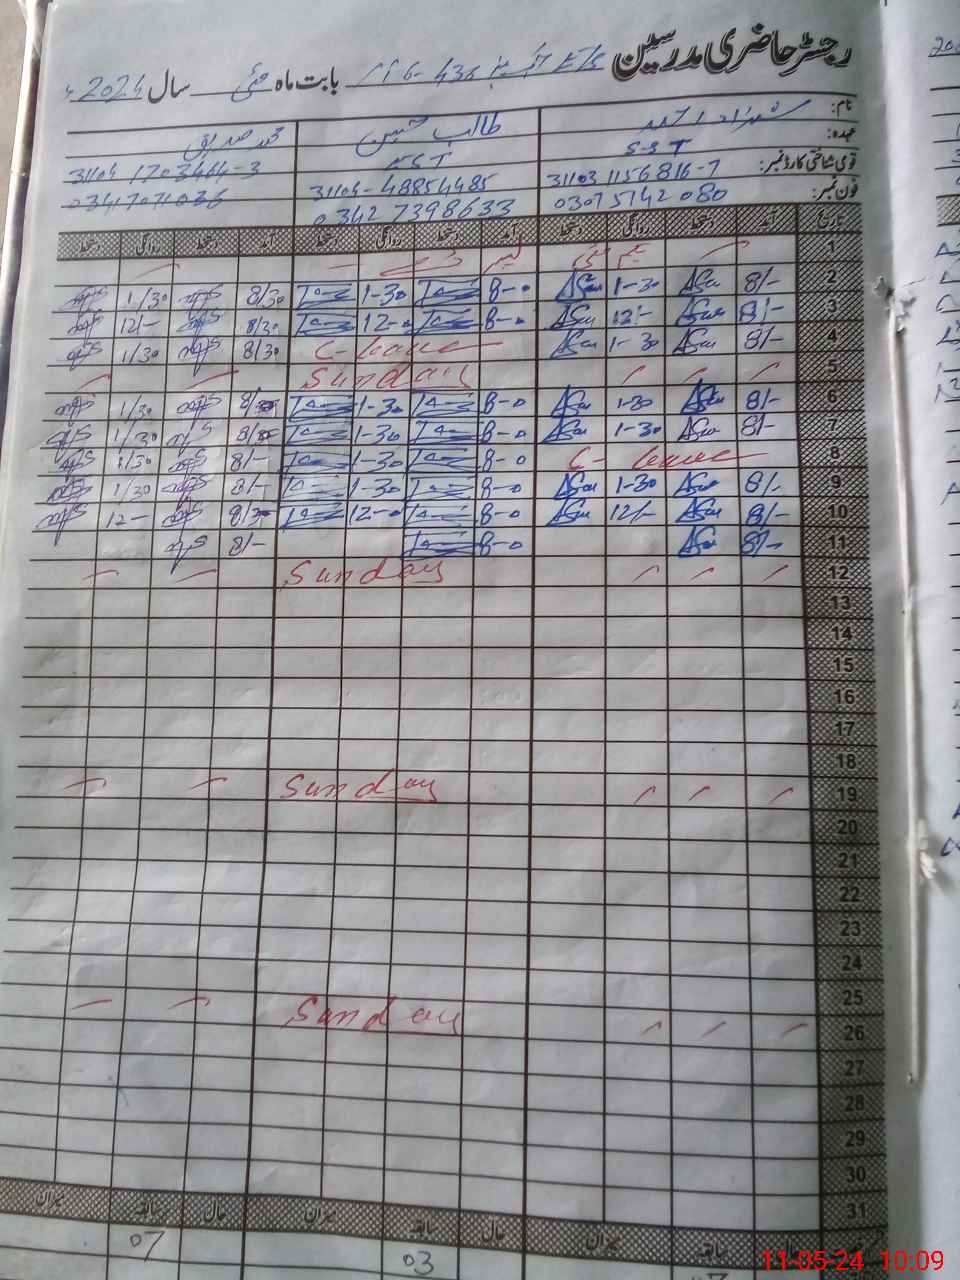 رجسٹر حاضری مدرسین
بابت ماہ مئی سال 2024ء
نام: شہزاد احمد طالب حسین محمد صدیق
عہدہ: S-S-T EST
قومی شناختی کارڈ نمبر: 31103 1156816-7 31104-48854485 31104 1703464-3
فون نمبر: 03075142080 03427398633
تاریخ آمد دستخط روانگی دستخط آمد دستخط روانگی دستخط آمد دستخط روانگی دستخط
1 یکم مئی لیبر ڈے
2 8/- 1-30 8-0 1-30 8/30 1/30
3 8/- 12/- 8-0 12-0 8/30 12/-
4 8/- 1-30 C-leave 8/30 1/30
5 Sunday
6 8/- 1-30 8-0 1-30 1/30
7 8/- 1-30 8-0 1-30 1/30
8 C-leave 8-0 1-30 8/- 1/30
9 8/- 1-30 8-0 1-30 8/- 1/30
10 8/- 12/- 8-0 12-0 8/30 12-
11 8/- 8-0 8/-
12 Sunday
13
14
15
16
17
18
19 Sunday
20
21
22
23
24
25
26 Sunday
27
28
29
30
31
حال سابقہ میزان حال سابقہ میزان حال سابقہ میزان
03 07
11-05-24 10:09